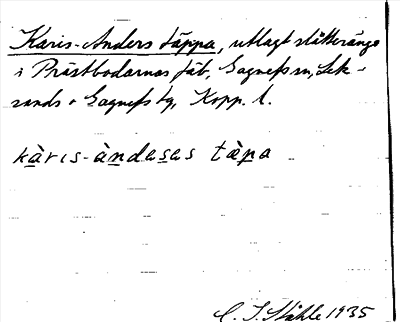 Karis-Anders täppa, utlagt slåtteränge
i Prästbodarnas fäb, Gagnefs sn, Lek-
sands o Gagnefs tg, Kopp. l.
kàrıs-àndasas tàpa
C. I. Ståhle 1935